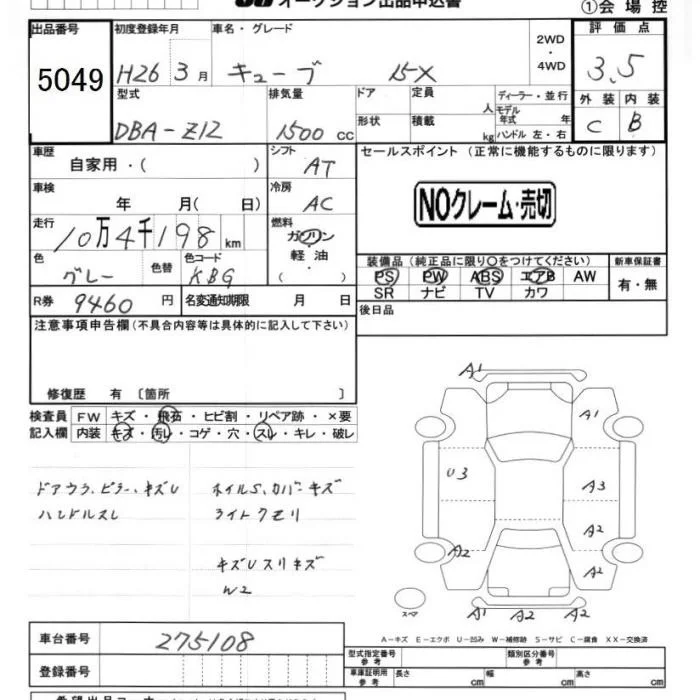 オークション出品申込書
①会場控
出品番号 初度登録年月 車名・グレード 2WD・4WD 評価点
5049 H26 3月 キューブ 15X 3.5
型式 排気量 ドア 定員 人 ディーラー・並行 外装 内装
DBA-Z12 1500 cc 形状 積載 kg モデル年式 年 ハンドル 左・右 C B
車歴 自家用・( ) シフト AT セールスポイント (正常に機能するものに限ります)
車検 年 月( 日) 冷房 AC NOクレーム・売切
走行 10万4千198km 燃料 ガソリン
軽油
( )
色 グレー 色替 色コード KBG 装備品 (純正品に限り〇をつけてください) 新車保証書
PS PW ABS エアB AW 有・無
SR ナビ TV カワ
R券 9460円 名変通知期限 月 日 後日品
注意事項申告欄(不具合内容等は具体的に記入して下さい)
修復歴 有 〔箇所 〕
検査員 FW キズ・飛石・ヒビ割・リペア跡・×要
記入欄 内装 キズ・汚レ・コゲ・穴・スレ・キレ・破レ
ドアウラ、ピラー、キズU ホイルS、カバーキズ
ハンドルスレ ライトクモリ
キズUスリキズ
W2
A1
A1
U3 A3
A2
A2 A2
スペア A1 A2 A2
A-キズ E-エクボ U-凹み W-補修跡 S-サビ C-腐食 XX-交換済
車台番号 275108 型式指定番号 参考 類別区分番号 参考
登録番号 車庫証明用 参考 長さ cm 幅 cm 高さ cm